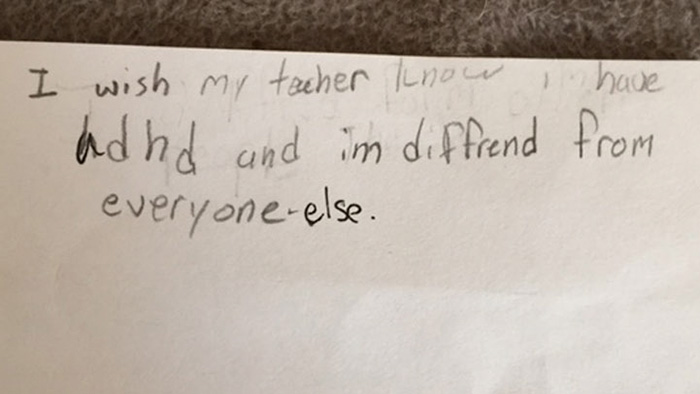 I wish my teacher know i have
Adhd and im diffrend from
everyone-else.